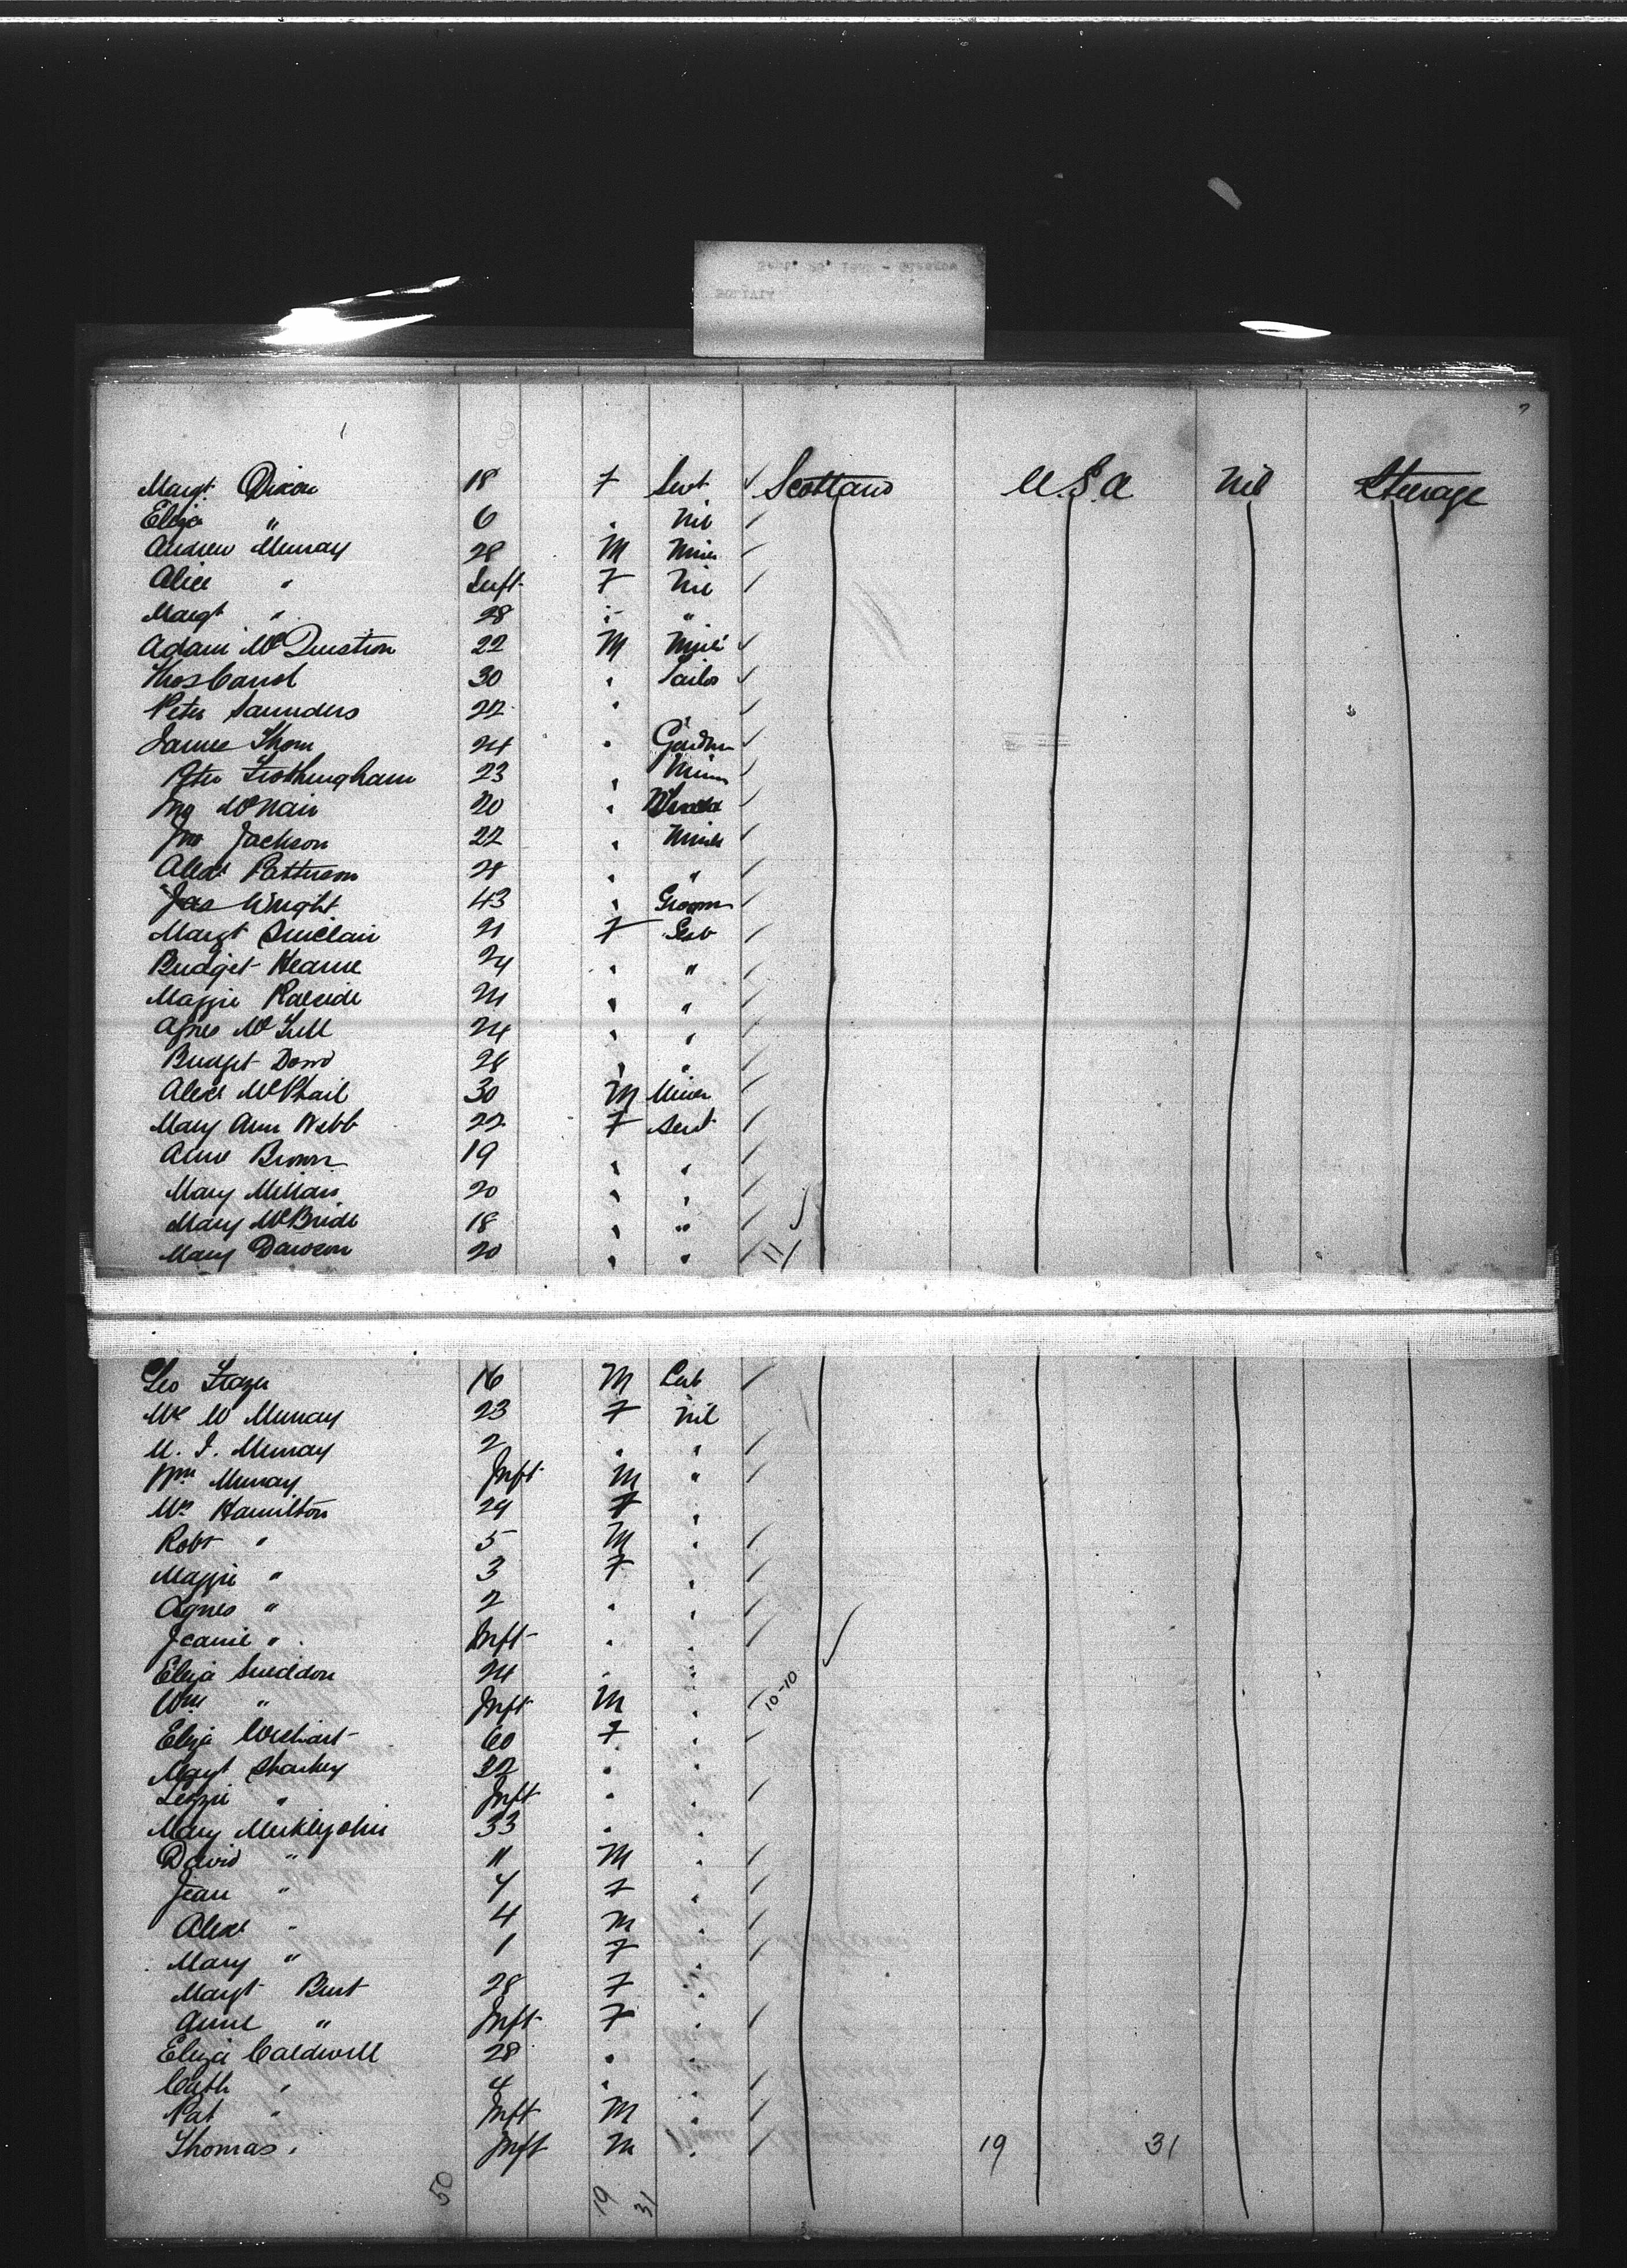 Margt Dixon 18 F Servt Scotland U.S.A Nil Steerage
Eliza " 6 " Nil
Andrew Murray 28 M Miner
Alice " Inft F Nil
Margt " 28 " "
Adam McQuestion 22 M Miner
Thos Caird 30 " Tailor
Peter Saunders 22 "
James Thom 24 " Gardnr
Peter Frothingham 23 " Miner
Jno McNair 20 "
Jno Jackson 22 " Miner
Alexr Patterson 28 " "
Jas Wright 43 " Groom
Margt Sinclair 21 F Serv
Bridget Hearne 24 " "
Maggie Raeside 24 " "
Agnes 24 " "
Bridget Dowd 28 " "
Alexr McPhail 30 M Miner
Mary Ann Webb 22 F Servt
Anne Brown 19 " "
Mary Millar 20 " "
Mary McBride 18 " "
Mary Dawson 20 " " 11
Geo Frazer 16 M Lab
Mrs W Murray 23 F Nil
M. J. Murray 2 " "
Wm Murray Inft M "
Mrs Hamilton 29 F "
Robt " 5 M "
Maggie " 3 F "
Agnes " 2 " "
Jeanie " Inft " "
Eliza Sneddon 24 " "
Wm " Inft M " 10-10
Eliza Wishart 60 F "
Margt Sharkey 22 " "
Lizzie " Inft " "
Mary Meiklejohn 33 " "
David " 11 M "
Jean " 7 F "
Alexr " 4 M "
Mary " 1 F "
Margt Burt 28 F "
Anne " Inft F "
Eliza Caldwell 28 " "
Cath " 4 " "
Pat " Inft M "
Thomas " Inft M " 19 31
50 19 31